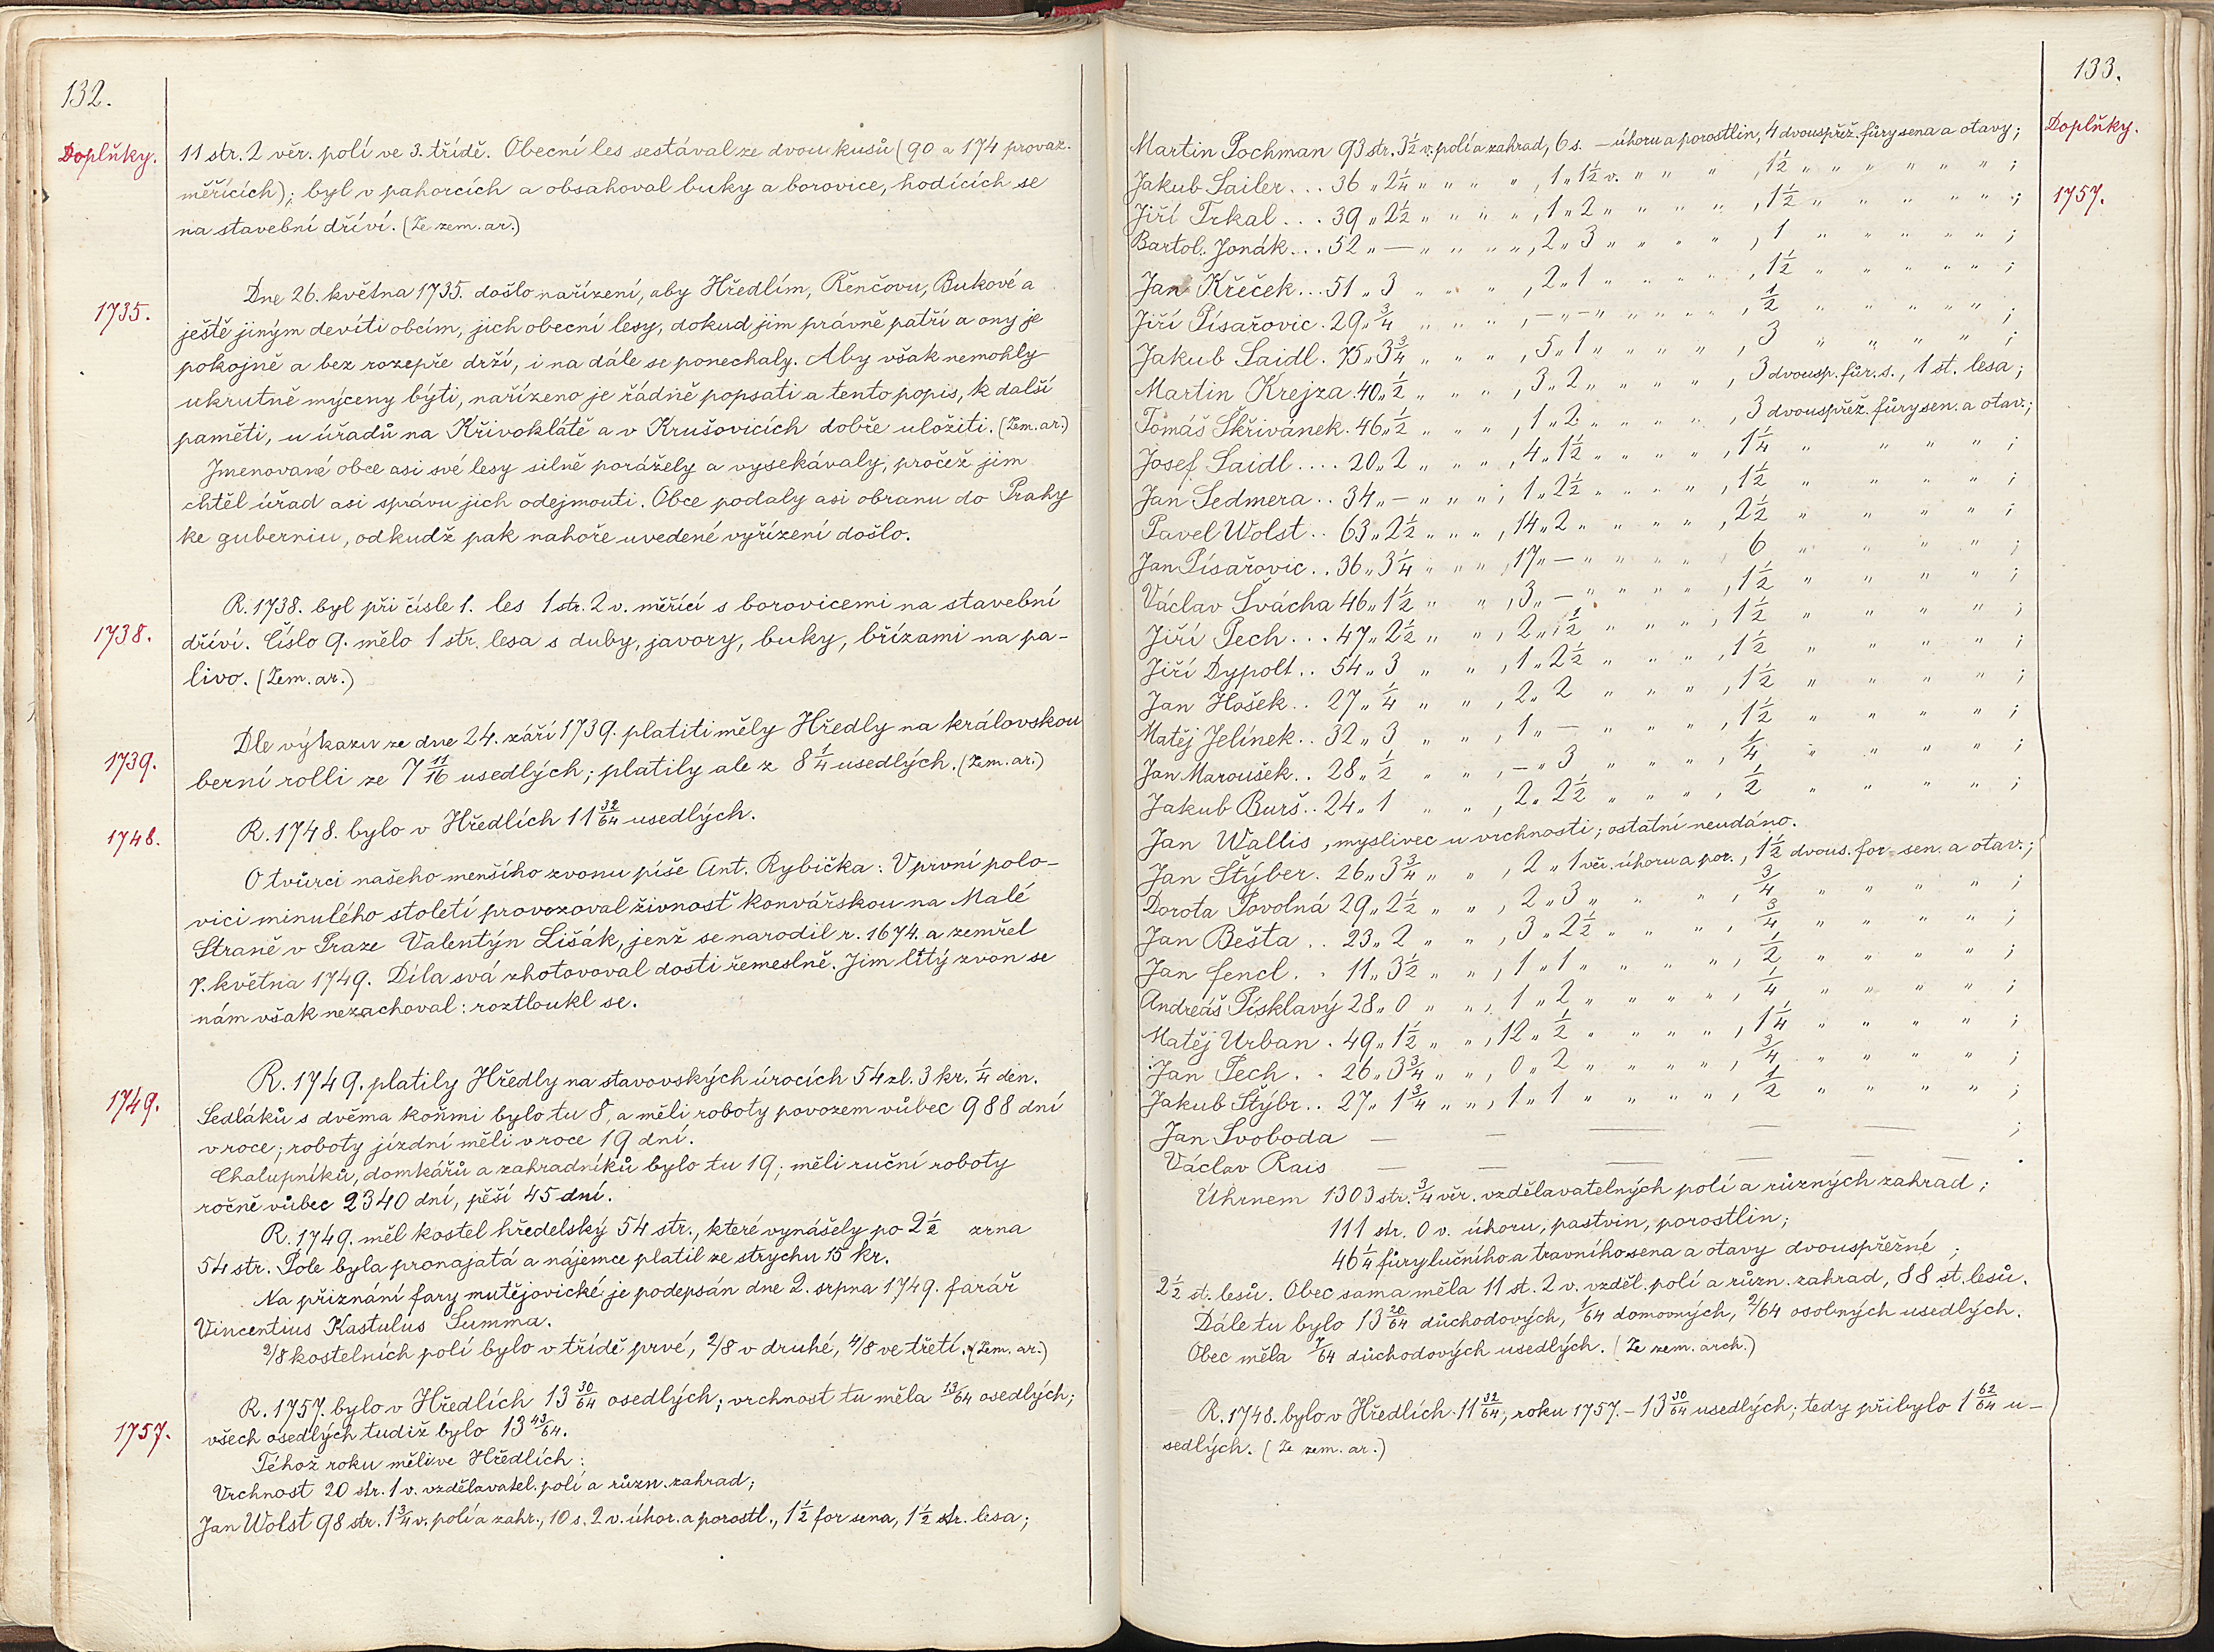 132.
Doplňky.
11 str. 2 věr. polí ve 3. třídě. Obecní les sestával ze dvou kusů (90 a 174 provaz.
měřících); byl v pahorcích a obsahoval buky a borovice, hodících se
na stavební dříví. (Ze zem. ar.)
1735.
Dne 26. května 1735. došlo nařízení, aby Hředlím, Řenčovu, Bukové a
ještě jiným devíti obcím, jich obecní lesy, dokud jim právně patří a ony je
pokojně a bez rozepře drží, i na dále se ponechaly. Aby však nemohly
ukrutně mýceny býti, nařízeno je řádně popsati a tento popis, k další
paměti, u úřadů na Křivoklátě a v Krušovicích dobře uložiti. (Zem. ar.)
Jmenované obce asi své lesy silně porážely a vysekávaly, pročež jim
chtěl úřad asi správu jich odejmouti. Obce podaly asi obranu do Prahy
ke guberniu, odkudž pak nahoře uvedené vyřízení došlo.
1738.
R. 1738. byl při čísle 1. les 1 str. 2 v. měřící s borovicemi na stavební
dříví. Číslo 9. mělo 1 str. lesa s duby, javory, buky, břízami na pa-
livo. (Zem. ar.)
1739.
Dle výkazu ze dne 24. září 1739. platiti měly Hředly na královskou
berní rolli ze 7 11/16 usedlých; platily ale z 8 1/4 usedlých. (Zem. ar.)
1748.
R. 1748. bylo v Hředlích 11 32/64 usedlých.
O tvůrci našeho menšího zvonu píše Ant. Rybička: V první polo-
vici minulého století provozoval živnosť konvářskou na Malé
Straně v Praze Valentýn Lišák, jenž se narodil r. 1674. a zemřel
7. května 1749. Díla svá zhotovoval dosti řemeslně. Jim litý zvon se
nám však nezachoval: roztloukl se.
1749.
R. 1749. platily Hředly na stavovských úrocích 54 zl. 3 kr. 1/4 den.
Sedláků s dvěma koňmi bylo tu 8, a měli roboty povozem vůbec 988 dní
v roce; roboty jízdní měli v roce 19 dní.
Chalupníků, domkářů a zahradníků bylo tu 19; měli ruční roboty
ročně vůbec 2340 dní, pěší 45 dní.
R. 1749. měl kostel hředelský 54 str., které vynášely po 2 1/2 zrna
54 str. Pole byla pronajatá a nájemce platil ze strychu 15 kr.
Na přiznání fary mutějovické je podepsán dne 2. srpna 1749. farář
Vincentius Kastulus Summa.
2/8 kostelních polí bylo v třídě prvé, 2/8 v druhé, 4/8 ve třetí. (Zem. ar.)
1757.
R. 1757. bylo v Hředlích 13 30/64 osedlých; vrchnost tu měla 13/64 osedlých;
všech osedlých tudíž bylo 13 43/64.
Téhož roku měli ve Hředlích:
Vrchnost 20 str. 1 v. vzdělavatel. polí a různ. zahrad;
Jan Wolst 98 str. 1 3/4 v. polí a zahr., 10 s. 2 v. úhor. a porostl., 1 1/2 for sena, 1 1/2 str. lesa;
133.
Doplňky.
1757.
Martin Pochman 93 str. 3 1/2 v. polí a zahrad, 6 s. — úhoru a porostlin, 4 dvouspřež. fůry sena a otavy;
Jakub Sailer... 36 „ 2 1/4 „ „ „ „, 1 „ 1 1/2 v. „ „ „ „, 1 1/2 „ „ „ „ „ „;
Jiří Trkal... 39 „ 2 1/2 „ „ „ „, 1 „ 2 „ „ „ „ „, 1 1/2 „ „ „ „ „ „;
Bartol. Jonák... 52 „ — „ „ „ „, 2 „ 3 „ „ „ „, 1 „ „ „ „ „;
Jan Křeček... 51 „ 3 „ „ „, 2 „ 1 „ „ „ „, 1 1/2 „ „ „ „ „;
Jiří Písařovic. 29 „ 3/4 „ „ „ „, — „ — „ „ „ „ „, 1/2 „ „ „ „ „;
Jakub Saidl. 75 „ 3 3/4 „ „ „, 5 „ 1 „ „ „ „ „, 3 „ „ „ „ „;
Martin Krejza. 40 „ 1/2 „ „ „, 3 „ 2 „ „ „ „ „, 3 dvousp. fůr. s., 1 st. lesa;
Tomáš Skřivánek. 46 „ 1/2 „ „ „, 1 „ 2 „ „ „ „ „, 3 dvouspřež. fůry sen. a otav.;
Josef Saidl.... 20 „ 2 „ „ „, 4 „ 1 1/2 „ „ „ „, 1 1/4 „ „ „ „ „;
Jan Sedmera.. 34 „ — „ „ „, 1 „ 2 1/2 „ „ „ „, 1 1/2 „ „ „ „ „;
Pavel Wolst.. 63 „ 2 1/2 „ „ „, 14 „ 2 „ „ „ „, 2 1/2 „ „ „ „ „;
Jan Písařovic.. 36 „ 3 1/4 „ „ „, 17 „ — „ „ „ „ 6 „ „ „ „;
Václav Švácha 46 „ 1 1/2 „ „, 3 „ — „ „ „ „, 1 1/2 „ „ „ „ „;
Jiří Pech... 47 „ 2 1/2 „ „, 2 „ 1 1/2 „ „ „ „, 1 1/2 „ „ „ „ „;
Jiří Dypolt.. 54 „ 3 „ „, 1 „ 2 1/2 „ „ „ „, 1 1/2 „ „ „ „ „;
Jan Hošek.. 27 „ 1/4 „ „, 2 „ 2 „ „ „ „, 1 1/2 „ „ „ „ „;
Matěj Jelínek.. 32 „ 3 „ „, 1 „ — „ „ „ „, 1 1/2 „ „ „ „ „;
Jan Maroušek.. 28 „ 1/2 „ „, — „ 3 „ „ „ „, 1/4 „ „ „ „ „;
Jakub Burš.. 24 „ 1 „ „, 2 „ 2 1/2 „ „ „ „, 1/2 „ „ „ „ „;
Jan Wallis, myslivec u vrchnosti; ostatní neudáno.
Jan Štýber. 26 „ 3 3/4 „ „, 2 „ 1 věr. úhoru a por., 1 1/2 dvous. for sen. a otav.;
Dorota Povolná 29 „ 2 1/2 „ „, 2 „ 3 „ „ „, 3/4 „ „ „ „;
Jan Bešta.. 23 „ 2 „ „, 3 „ 2 1/2 „ „ „ „, 3/4 „ „ „ „;
Jan Fencl.. 11 „ 3 1/2 „ „, 1 „ 1 „ „ „ „ „, 1/2 „ „ „ „;
Andreáš Písklavý 28 „ 0 „ „, 1 „ 2 „ „ „ „ „, 1/4 „ „ „ „ „;
Matěj Urban. 49 „ 1 1/2 „ „, 12 „ 1/2 „ „ „ „ „, 1 1/4 „ „ „ „;
Jan Pech.. 26 „ 3 3/4 „ „, 0 „ 2 „ „ „ „ „, 3/4 „ „ „ „ „;
Jakub Štýbr.. 27 „ 1 3/4 „ „, 1 „ 1 „ „ „ „ „, 1/2 „ „ „ „;
Jan Svoboda — — — — — ;
Václav Rais — — — — — — .
Úhrnem 1303 str. 3/4 věr. vzdělavatelných polí a různých zahrad;
111 str. 0 v. úhoru, pastvin, porostlin;
46 1/4 fůry lučního a travního sena a otavy dvouspřežné;
2 1/2 st. lesů. Obec sama měla 11 st. 2 v. vzděl. polí a různ. zahrad, 88 st. lesů.
Dále tu bylo 13 20/64 důchodových, 1/64 domovných, 2/64 osobných usedlých.
Obec měla 7/64 důchodových usedlých. (Ze zem. arch.)
R. 1748. bylo v Hředlích 11 32/64, roku 1757. — 13 30/64 usedlých; tedy přibylo 1 62/64 u-
sedlých. (Ze zem. ar.)